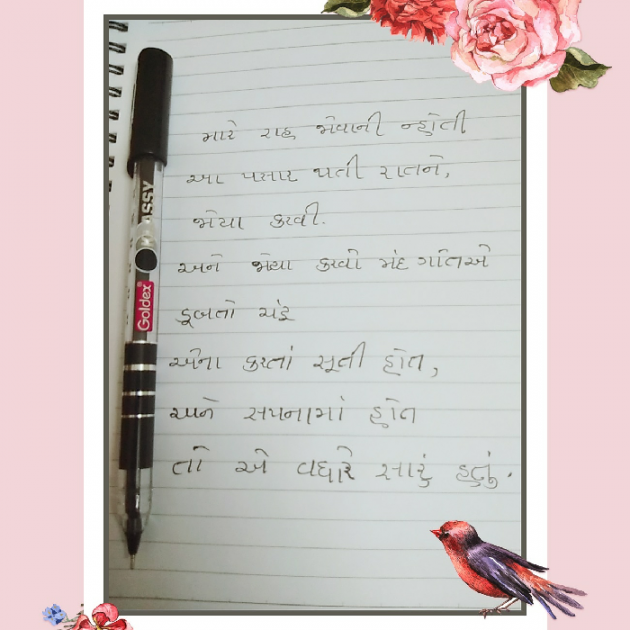 મારે રાહ જોવાની ન્હોતી
આ પસાર થતી રાતને,
જોયા કરવી.
અને જોયા કરવો મંદ ગતિએ
ડૂબતો ચંદ્ર
એના કરતાં સૂતી હોત,
અને સપનામાં હોત
તો એ વધારે સારું હતું.
KLASSY
Goldex